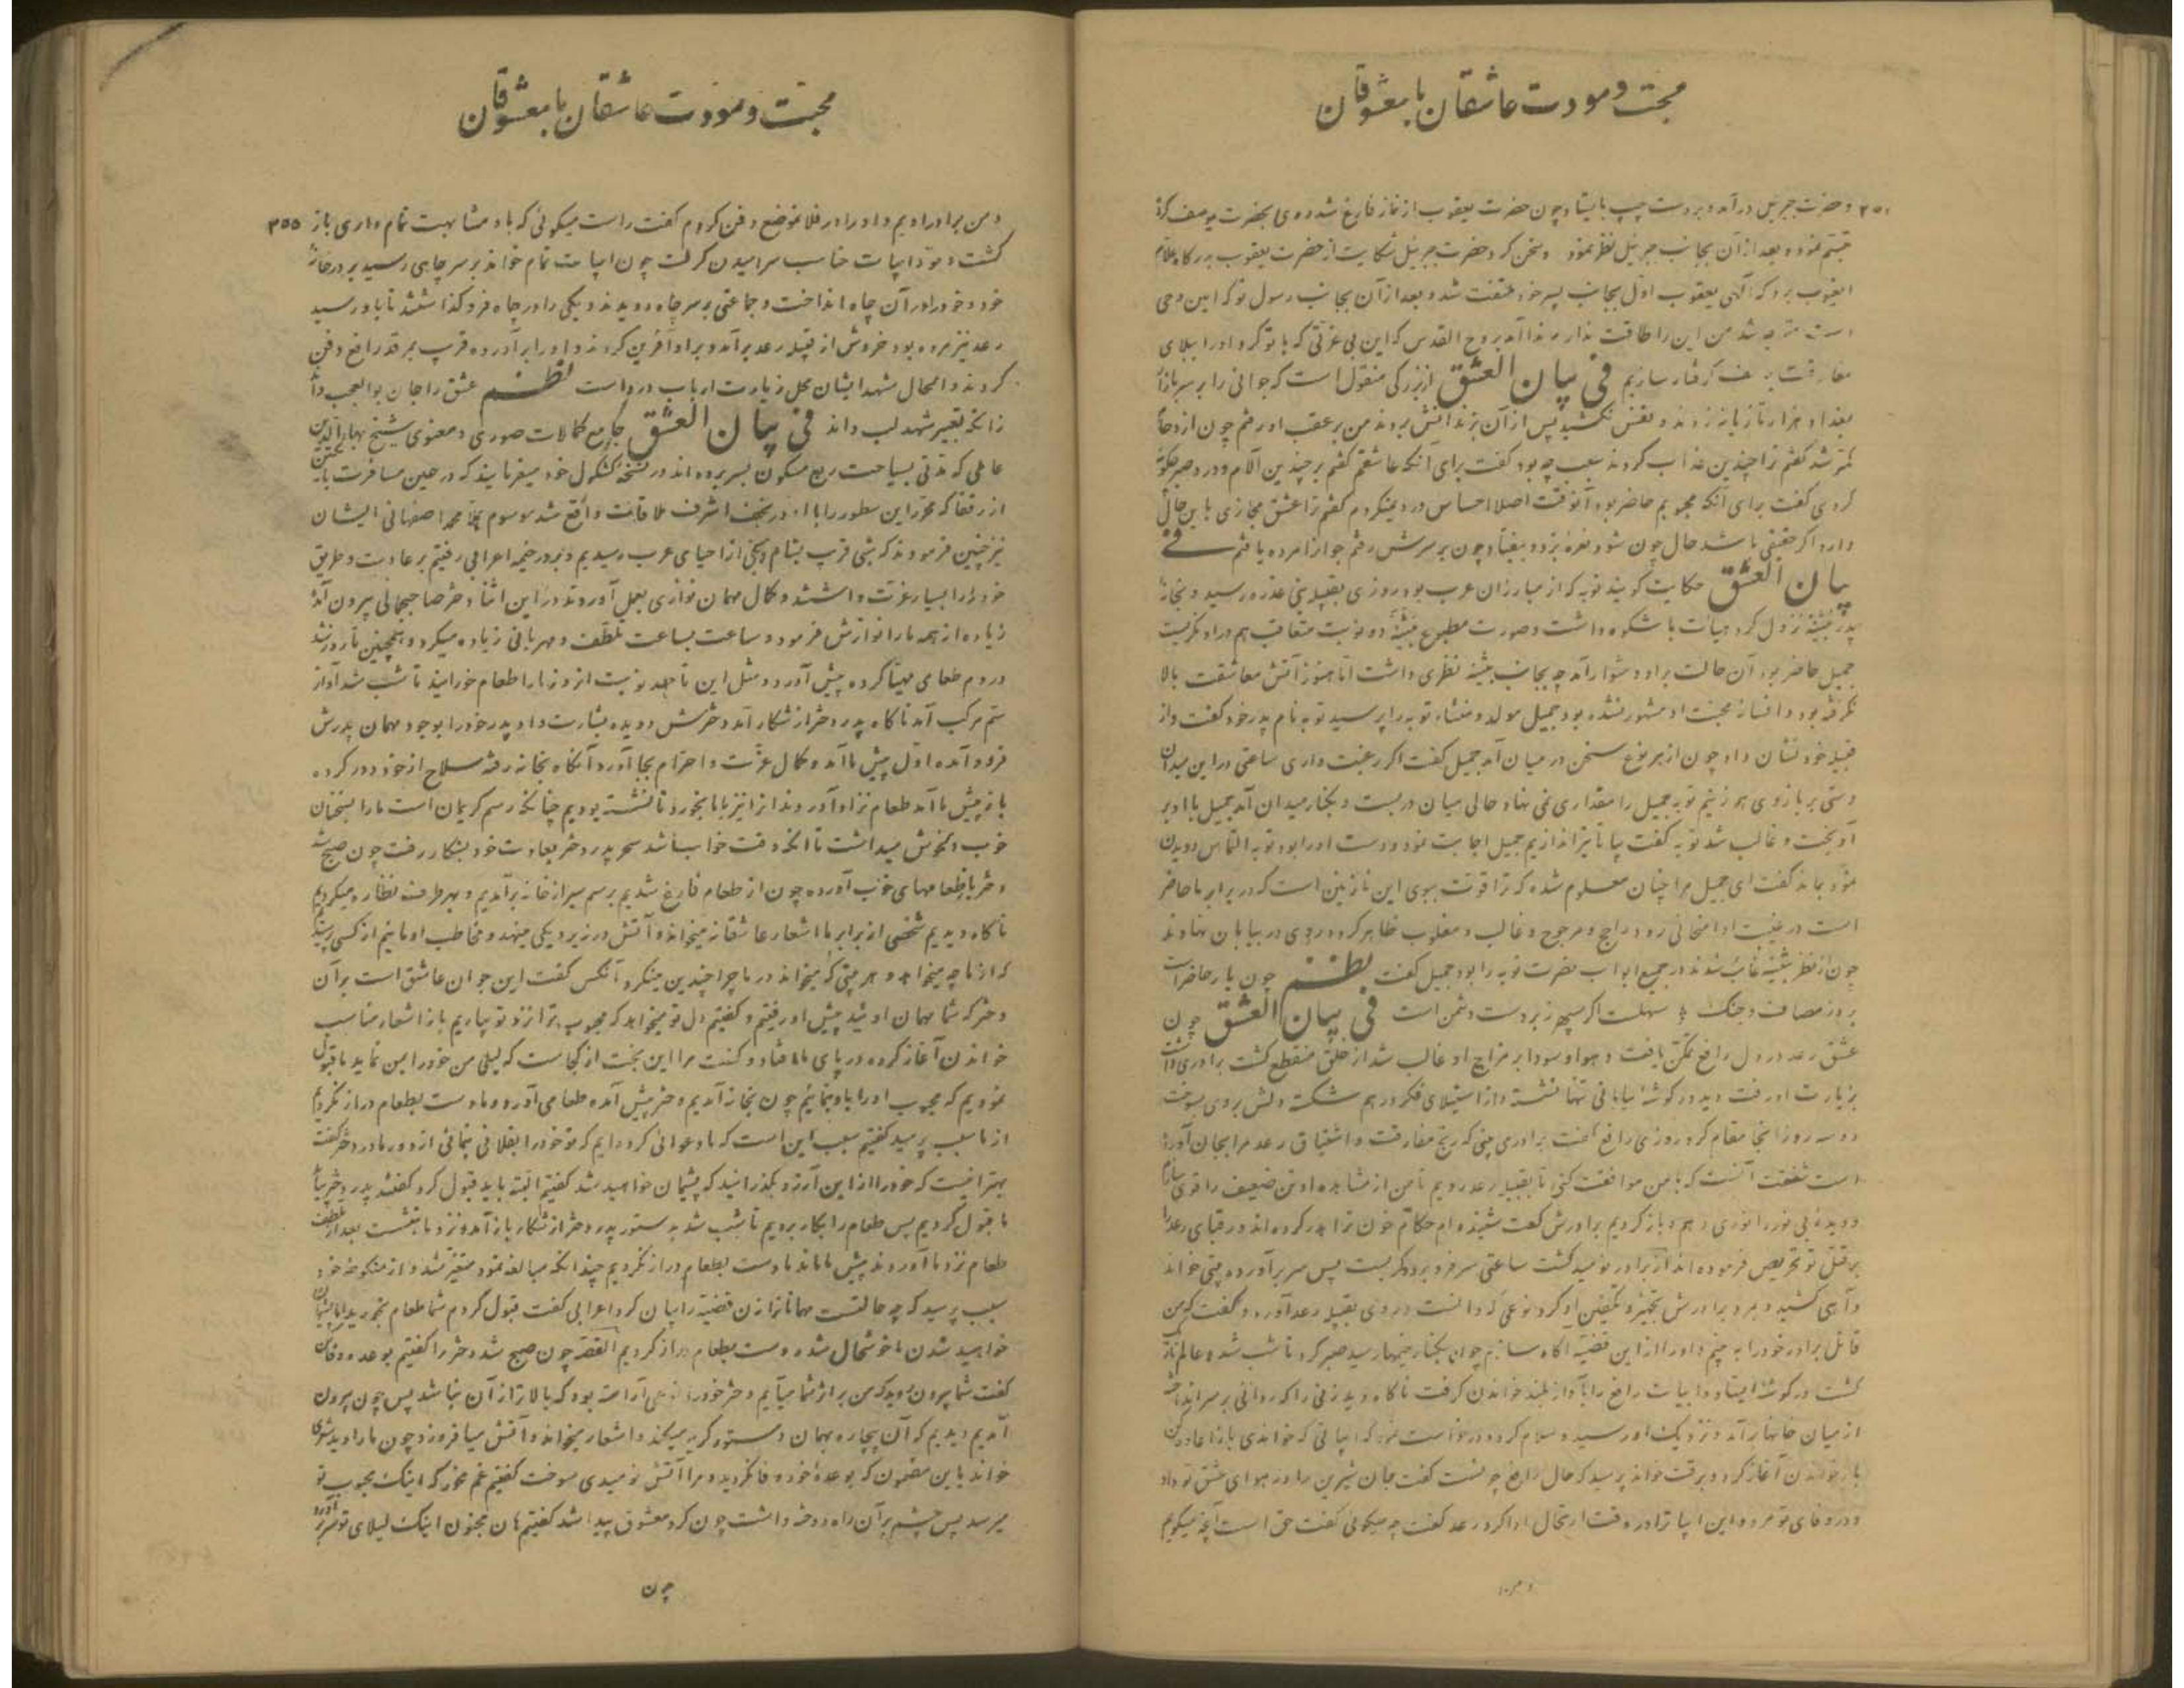 محبت و مودت عاشقان با معشوقان
و حضرت جبریل درآمد و بر دست چپ بایستاد و چون حضرت یعقوب از نماز فارغ شد روی بحضرت یوسف کرد
تبسم نمود و بعد از آن بجانب جبرئیل نظر نمود و سخن کرد حضرت جبرئیل شکایت از حضرت یعقوب بدرگاه علام
الغیوب برد که الهی یعقوب اول بجانب پسر خود ملتفت شد و بعد از آن بجانب رسول تو که امین وحی
است متوجه شد من این را طاقت ندارم ندا آمد بروح القدس که این بی عزتی که با تو کرد او را ببلای
مفارقت یوسف گرفتار سازیم فی بیان العشق از بزرگی منقول است که جوانی را بر سر بازار
بغداد هزار تازیانه زدند و نفس نکشید پس از آن بزندانش بردند من بر عقب او رفتم چون ازدحام
کمتر شد گفتم ترا چندین عذاب کردند سبب چه بود گفت برای آنکه عاشقم گفتم بر چندین آلام و درد صبر چگونه
کردی گفت برای آنکه محبوبم حاضر بود آنوقت اصلا احساس درد نمیکردم گفتم ترا عشق مجازی باین حال
دارد اگر حقیقی باشد حال چون شود نعره بزد و بیفتاد چون بر سرش رفتم جوان را مرده یافتم فی
بیان العشق حکایت گویند توبه که از مبارزان عرب بود روزی بقبیله بنی عذره رسید و بخانه
پدر بثینه نزول کرد هیأت با شکوه داشت و صورت مطبوع بثینه دو نوبت متعاقب هم در او نگریست
جمیل حاضر بود آن حالت بر او دشوار آمد چه بجانب بثینه نظری داشت اما هنوز آتش معاشقت بالا
نگرفته بود و افسانه محبت او مشهور نشده بود جمیل مولد و منشاء توبه را پرسید توبه نام پدر خود گفت و از
قبیله خود نشان داد چون از هر نوع سخن در میان آمد جمیل گفت اگر رغبت داری ساعتی در این میدان
دستی بر بازوی هم زنیم توبه جمیل را مقداری نمی نهاد حالی میان در بست و بکنار میدان آمد جمیل با او بر
آویخت و غالب شد توبه گفت بیا تا تیر اندازیم جمیل اجابت نمود و دست او را بود توبه التماس دویدن
نمود بماند گفت ای جمیل مرا چنان معلوم شده که ترا قوت ببوی این نازنین است که در برابر ما حاضر
است در غیبت او امتحانی رود راجح و مرجوح و غالب و مغلوب ظاهر گردد روی در بیابان نهادند
چون از نظر بثینه غایب شدند در جمیع ابواب نصرت توبه را بود جمیل گفت نظم چون یار حاضر است
بروز مصاف و جنگ سهلست اگر سپهر زبردست دشمن است فی بیان العشق چون
عشق رعد در دل رافع تمکن یافت و هوا و سودا بر مزاج او غالب شد از خلق منقطع گشت برادری داشت
بزیارت او رفت دید در گوشه بیابانی تنها نشسته و از استیلای فکر درهم شکسته دلش بر وی بسوخت
دو سه روز آنجا مقام کرد روزی رافع گفت برادری بینی که رنج مفارقت و اشتیاق رعد مرا بجان آورده
است شفقت آنست که با من موافقت کنی تا بقبیله رعد رویم تا من از مشاهده او تن ضعیف را قوی سازم
و دیده بی نور را نوری دهم و باز گردیم برادرش گفت شنیده ام حکام خون ترا هدر کرده اند و رقبای رعد را
بر قتل تو تحریص فرموده اند از برادر نومید گشت ساعتی سر فرو برد و گریست پس سر برآورده بیتی خواند
و آهی کشید و بمرد برادرش تجهیز و تکفین او کرد نوعی که دانست و روی بقبیله رعد آورد و گفت که من
قاتل برادر خود را به بینم و او را از این قضیه آگاه سازم چون بکنار خیمها رسید صبر کرد تا شب شد و عالم تاریک
گشت در گوشه ایستاد و ابیات رافع را بآواز بلند خواندن گرفت ناگاه دید زنی را که ردائی بر سر انداخته
از میان خانها برآمد و نزدیک او رسید و سلام کرد و درخواست نمود که ابیاتی که خواندی باز اعاده کن
باز خواندن آغاز کرد و برقت خواند پرسید که حال رافع چونست گفت جان شیرین را در هوای عشق تو داد
و در وفای تو مرد و این ابیات را در وقت ارتحال ادا کرد رعد گفت چه میگوئی گفت حق است آنچه میگویم
و من
محبت و مودت عاشقان با معشوقان
و من برادر اویم و او را در فلان موضع دفن کردم گفت راست میگوئی که باو مشابهت تمام داری باز ۳۵۵
گشت و خود ابیات مناسب سرائیدن گرفت چون ابیات تمام خواند بر سر چاهی رسید بر در خانه
خود و خود را در آن چاه انداخت و جماعتی بر سر چاه دویدند و یکی را در چاه فرو گذاشتند تا باو رسید
رعد نیز مرده بود خروش از قبیله رعد برآمد و بر او آفرین کردند و او را برآورده قرب مرقد رافع دفن
کردند و الحال مشهد ایشان محل زیارت ارباب درد است نظم عشق را جان بوالعجب داند
زانکه تفسیر شهد لب داند فی بیان العشق جامع کمالات صوری و معنوی شیخ بهاءالدین
عاملی که مدتی بسیاحت ربع مسکون بسر برده اند در نسخه کشکول خود میفرمایند که در حین مسافرت با یکی
از رفقا که محرر این سطور را با او در نجف اشرف ملاقات واقع شد موسوم بخواجه محمد اصفهانی ایشان
نیز چنین فرمودند که شبی قرب بشام بحی از احیای عرب رسیدیم و بدر خیمه اعرابی رفتیم بر عادت و طریق
خود ما را بسیار عزت داشتند و کمال مهمان نوازی بعمل آوردند در این اثنا دختر صاحبجمالی بیرون آمد
زیاده از همه ما را نوازش فرمود و ساعت بساعت تلطف و مهربانی زیاده میکرد و همچنین تا روز شد
در دم طعامی مهیا کرده پیش آورد و مثل این تا چند نوبت از روز ما را طعام خورانید تا شب شد آواز
سم مرکب آمد ناگاه پدر دختر از شکار آمد دخترش دویده بشارت داد پدر خود را بوجود مهمان پدرش
فرود آمده اول پیش ما آمد و کمال عزت و احترام بجا آورد آنگاه بخانه رفته سلاح از خود دور کرده
باز پیش ما آمد طعام نزد او آوردند از آنیز با ما بخورد تا نشسته بودیم چنانکه رسم کریمان است ما را بسخنان
خوب دلخوش میداشت تا آنکه وقت خواب شد سحر پدر دختر بعادت خود بشکار رفت چون صبح شد
دختر باز طعامهای خوب آورده چون از طعام فارغ شدیم برسم سیر از خانه برآمدیم و بهر طرف نظاره میکردیم
ناگاه دیدیم شخصی از برابر ما اشعار عاشقانه میخواند و آتش در زیر دیگی مینهد و مخاطب او مائیم از کسی پرسیدیم
که از ما چه میخواهد و هر بیتی که میخواند در ما چرا چندین مینگرد آنکس گفت این جوان عاشق است بر آن
دختر که شما مهمان اوئید پیش او رفتیم و گفتیم دل تو میخواهد که محبوب ترا نزد تو بیاریم باز اشعار مناسب
خواندن آغاز کرده در پای ما افتاد و گفت مرا این بخت از کجاست که لیلی من خود را بمن نماید ما قبول
نمودیم که محبوب او را باو بنمائیم چون بخانه آمدیم دختر پیش آمده طعام می آورد و ما دست بطعام دراز نکردیم
از ما سبب پرسید گفتیم سبب این است که ما دعوائی کرده ایم که تو خود را بفلانی بنمائی از دور مادر دختر گفت
بهتر آنست که خود را از این آرزو بگذرانید که پشیمان خواهید شد گفتیم البته باید قبول کرد گفتند پدر دختر بیاید
ما قبول کردیم پس طعام را بکار بردیم تا شب شد بدستور پدر دختر از شکار باز آمد و نزد ما بنشست بعد از تلطف
طعام نزد ما آوردند پیش ما ماند ما دست بطعام دراز نکردیم چندانکه مبالغه نمود متغیر شد و از منکوحه خود
سبب پرسید که چه حالتست مهمانانرا زن قضیه را بیان کرد اعرابی گفت قبول کردم شما طعام بخورید اما پشیمان
خواهید شدن ما خوشحال شده دست بطعام دراز کردیم القصه چون صبح شد دختر را گفتیم بوعده وفا کن
گفت شما بیرون روید که من بر اثر شما میآیم و دختر خود را نوعی آراسته بود که بالاتر از آن نباشد پس چون بیرون
آمدیم دیدیم که آن بیچاره بهمان دستور گریه میکند و اشعار میخواند و آتش میافروزد چون ما را دید شعری
خواند باین مضمون که بوعده خود وفا نکردید و مرا آتش نومیدی سوخت گفتیم غم مخور که اینک محبوب تو
میرسد پس چشم بر آن راه دوخته داشت چون گرد معشوق پیدا شد گفتیم هان مجنون اینک لیلای تو سر برآورد
چون